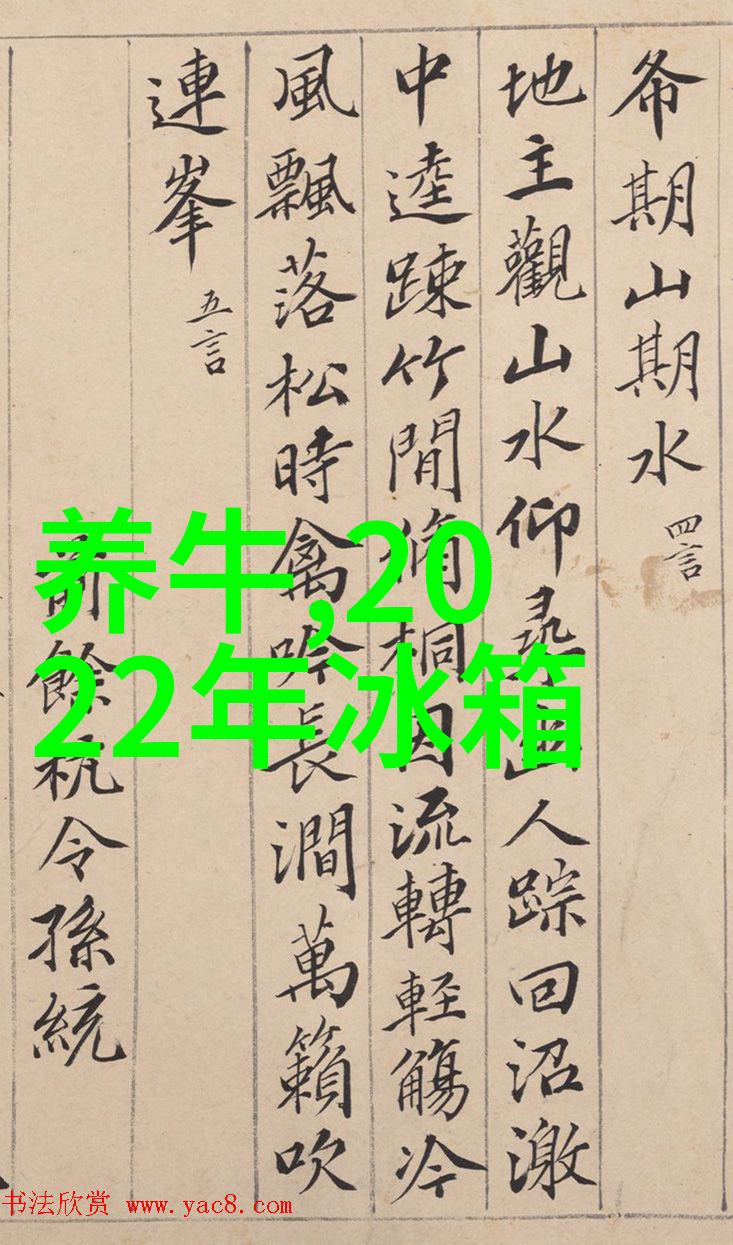 希期山期水 四言
地主觀山水仰尋幽人踪回沼激
中逵踈竹間脩桐因流轉輕觴冷
風飄落松時禽吟長澗萬籟吹
連峯 五言
前餘杭令孫統
养牛,20
22年冰箱
书法欣赏 www.yac8.com